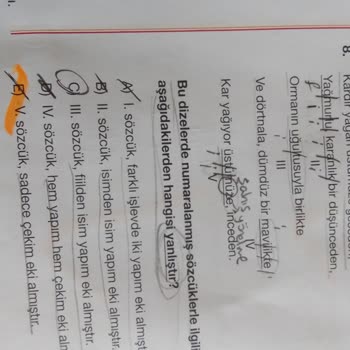 8.
Yağmurlu karanlık bir düşünceden,
II
Ormanın uğultusuyla birlikte
III
Ve dörtnala, dümdüz bir mavilikte
IV
Kar yağıyor üstümüze, inceden.
V
Bu dizelerde numaralanmış sözcüklerle ilgili
aşağıdakilerden hangisi yanlıştır?
A) I. sözcük, farklı işlevde iki yapım eki almışt
B) II. sözcük, isimden isim yapım eki almıştır.
C) III. sözcük, fiilden isim yapım eki almıştır.
D) IV. sözcük, hem yapım hem çekim eki alm
E) V. sözcük, sadece çekim eki almıştır.